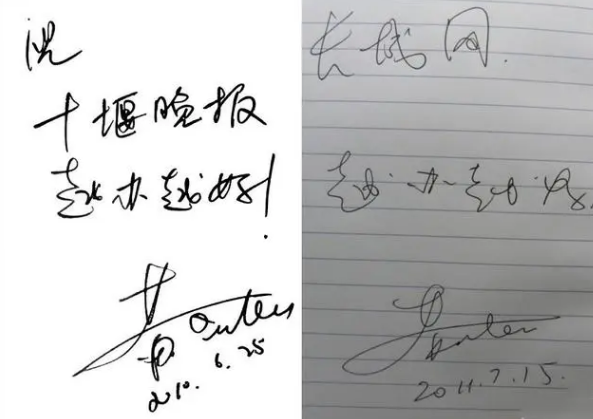 祝
十堰晚报
越办越好!
2010.6.25
长城网
越办越好
2011.7.15.